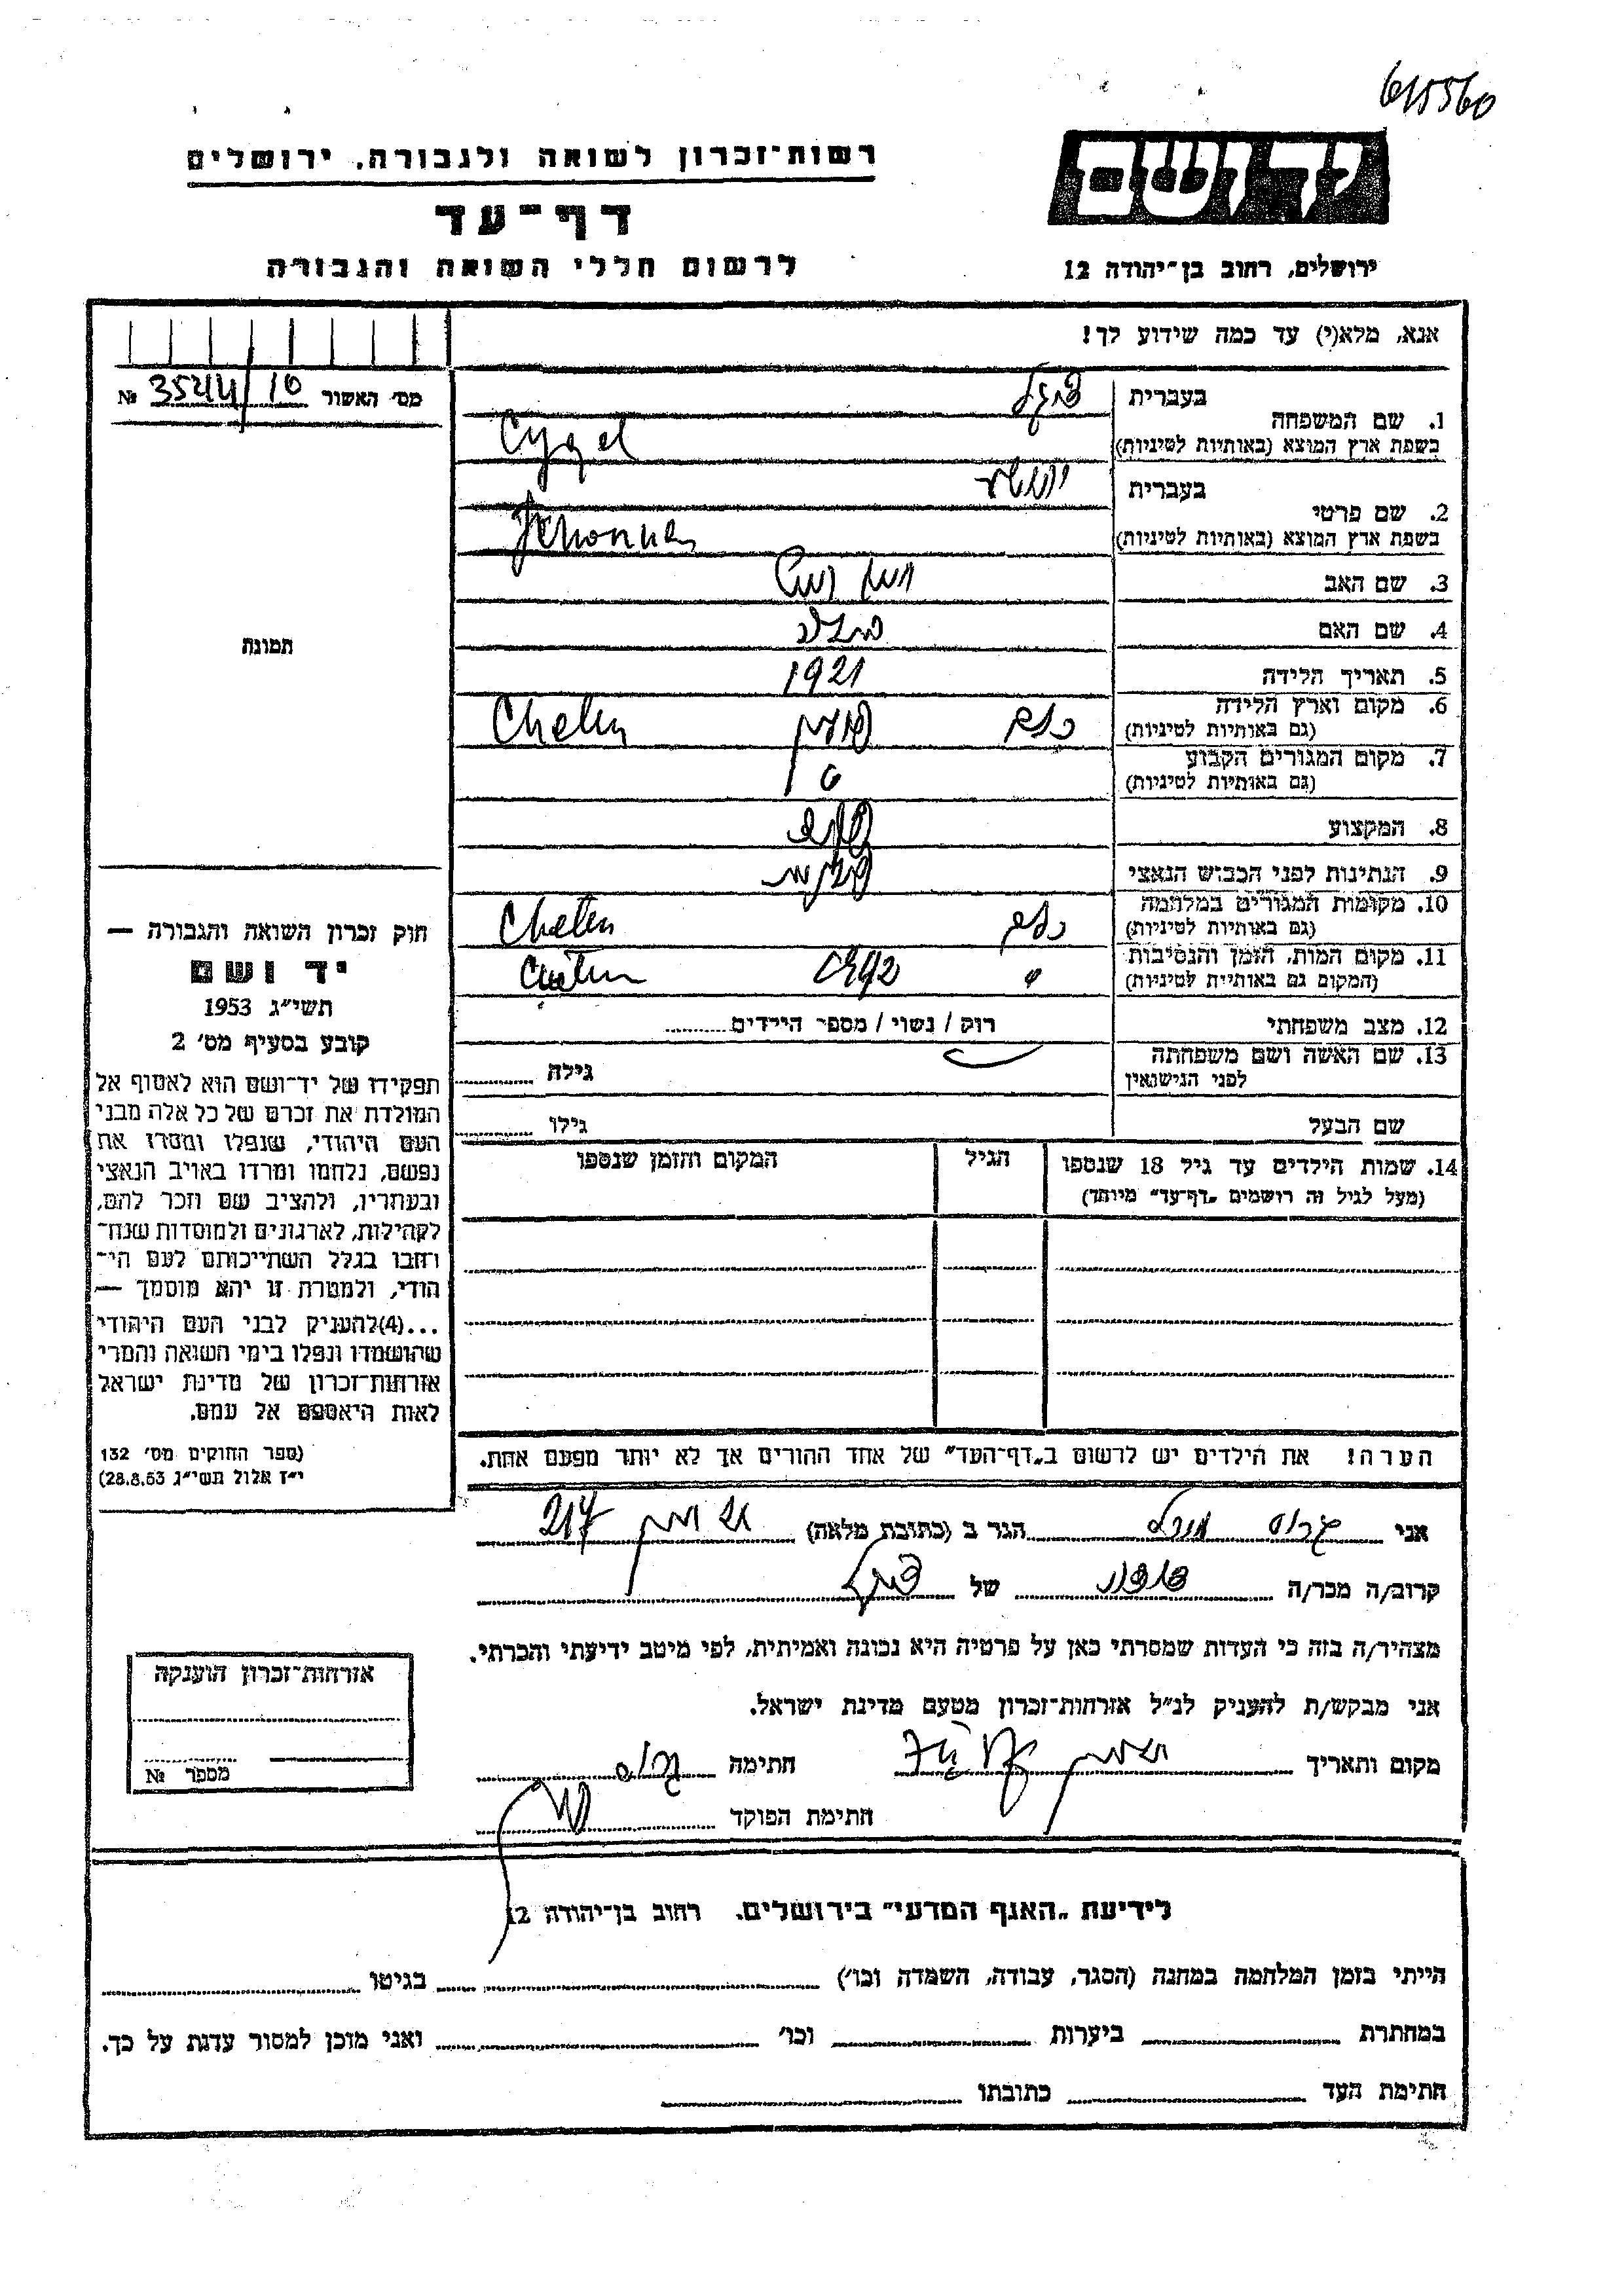 615560
יד ושם
רשות־זכרון לשואה ולגבורה, ירושלים
דף־עד
לרשום חללי השואה והגבורה
ירושלים, רחוב בן־יהודה 12
אנא, מלא(י) עד כמה שידוע לך!
מס׳ האשור 3544/10 №
1. שם המשפחה
בעברית ציגל
בשפת ארץ המוצא (באותיות לטיניות) Cygel
2. שם פרטי
בעברית יהושע
בשפת ארץ המוצא (באותיות לטיניות)
3. שם האב
4. שם האם
5. תאריך הלידה 1921
6. מקום וארץ הלידה
(גם באותיות לטיניות) כלם פולין Chelm
7. מקום המגורים הקבוע
(גם באותיות לטיניות)
8. המקצוע
9. הנתינות לפני הכבוש הנאצי
10. מקומות המגורים במלחמה
(גם באותיות לטיניות) כלם Chelm
11. מקום המות, הזמן והנסיבות
(המקום גם באותיות לטיניות) 1942
12. מצב משפחתי
רווק / נשוי / מספר הילדים
13. שם האשה ושם משפחתה
לפני הנישואין
גילה
שם הבעל
גילו
14. שמות הילדים עד גיל 18 שנספו
(מעל לגיל זה רושמים „דף־עד״ מיוחד)
הגיל
המקום והזמן שנספו
הערה! את הילדים יש לרשום ב„דף־העד״ של אחד ההורים אך לא יותר מפעם אחת.
תמונה
חוק זכרון השואה והגבורה —
יד ושם
תשי״ג 1953
קובע בסעיף מס׳ 2
תפקידו של יד־ושם הוא לאסוף אל
המולדת את זכרם של כל אלה מבני
העם היהודי, שנפלו ומסרו את
נפשם, נלחמו ומרדו באויב הנאצי
ובעוזריו, ולהציב שם וזכר להם,
לקהילות, לארגונים ולמוסדות שנח־
רבו בגלל השתייכותם לעם הי־
הודי, ולמטרה זו יהא מוסמך —
...(4)להעניק לבני העם היהודי
שהושמדו ונפלו בימי השואה והמרי
אזרחות־זכרון של מדינת ישראל
לאות היאספם אל עמם.
(ספר החוקים מס׳ 132
י״ז אלול תשי״ג 28.8.53)
אני
הגר ב (כתובת מלאה) 217
קרוב/ה מכר/ה של ציגל
מצהיר/ה בזה כי העדות שמסרתי כאן על פרטיה היא נכונה ואמיתית, לפי מיטב ידיעתי והכרתי.
אני מבקש/ת להעניק לנ״ל אזרחות־זכרון מטעם מדינת ישראל.
מקום ותאריך
חתימה
חתימת הפוקד
אזרחות־זכרון הוענקה
מספר №
לידיעת „האגף המדעי״ בירושלים. רחוב בן־יהודה 12
הייתי בזמן המלחמה במחנה (הסגר, עבודה, השמדה וכו׳) בגיטו
במחתרת ביערות וכו׳ ואני מוכן למסור עדות על כך.
חתימת העד כתובתו